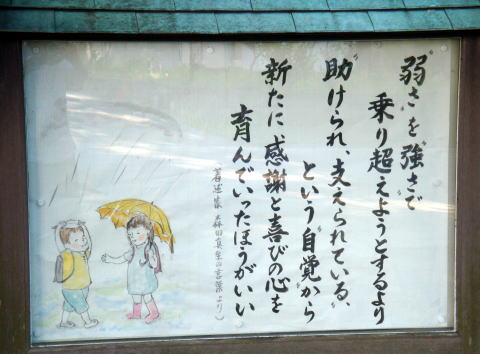 弱さを強さで
乗り超えようとするより
助けられ、支えられている、
という自覚から
新たに、感謝と喜びの心を
育んでいったほうがいい
(著述家 森田真生の言葉より)